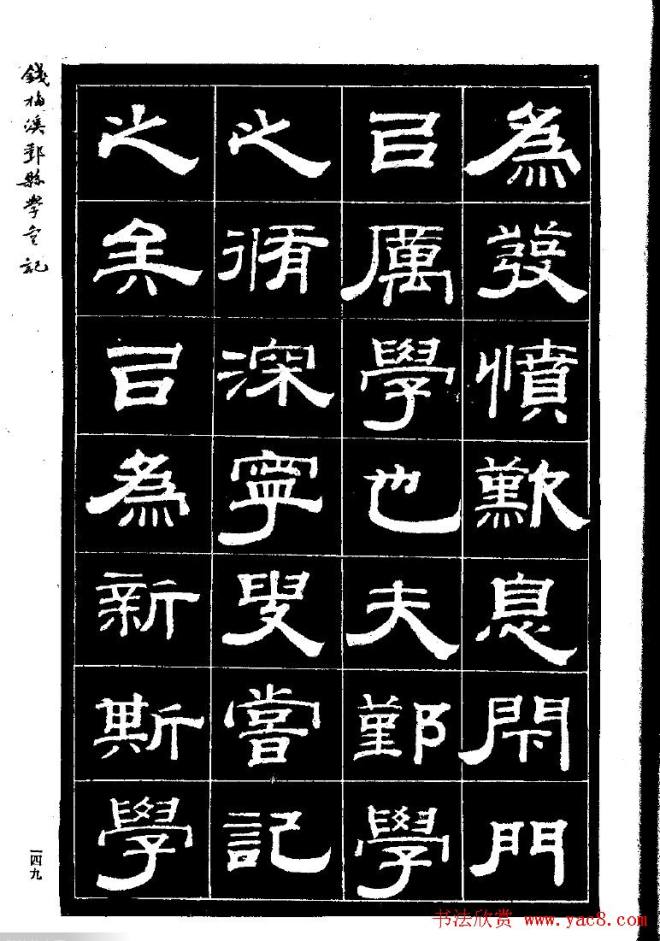 為發憤歎息閇門
㠯厲學也夫鄞學
之脩深寧叟嘗記
之矣㠯為新斯學
錢梅溪鄞縣學宮記
一四九
书法欣赏 www.yac8.com